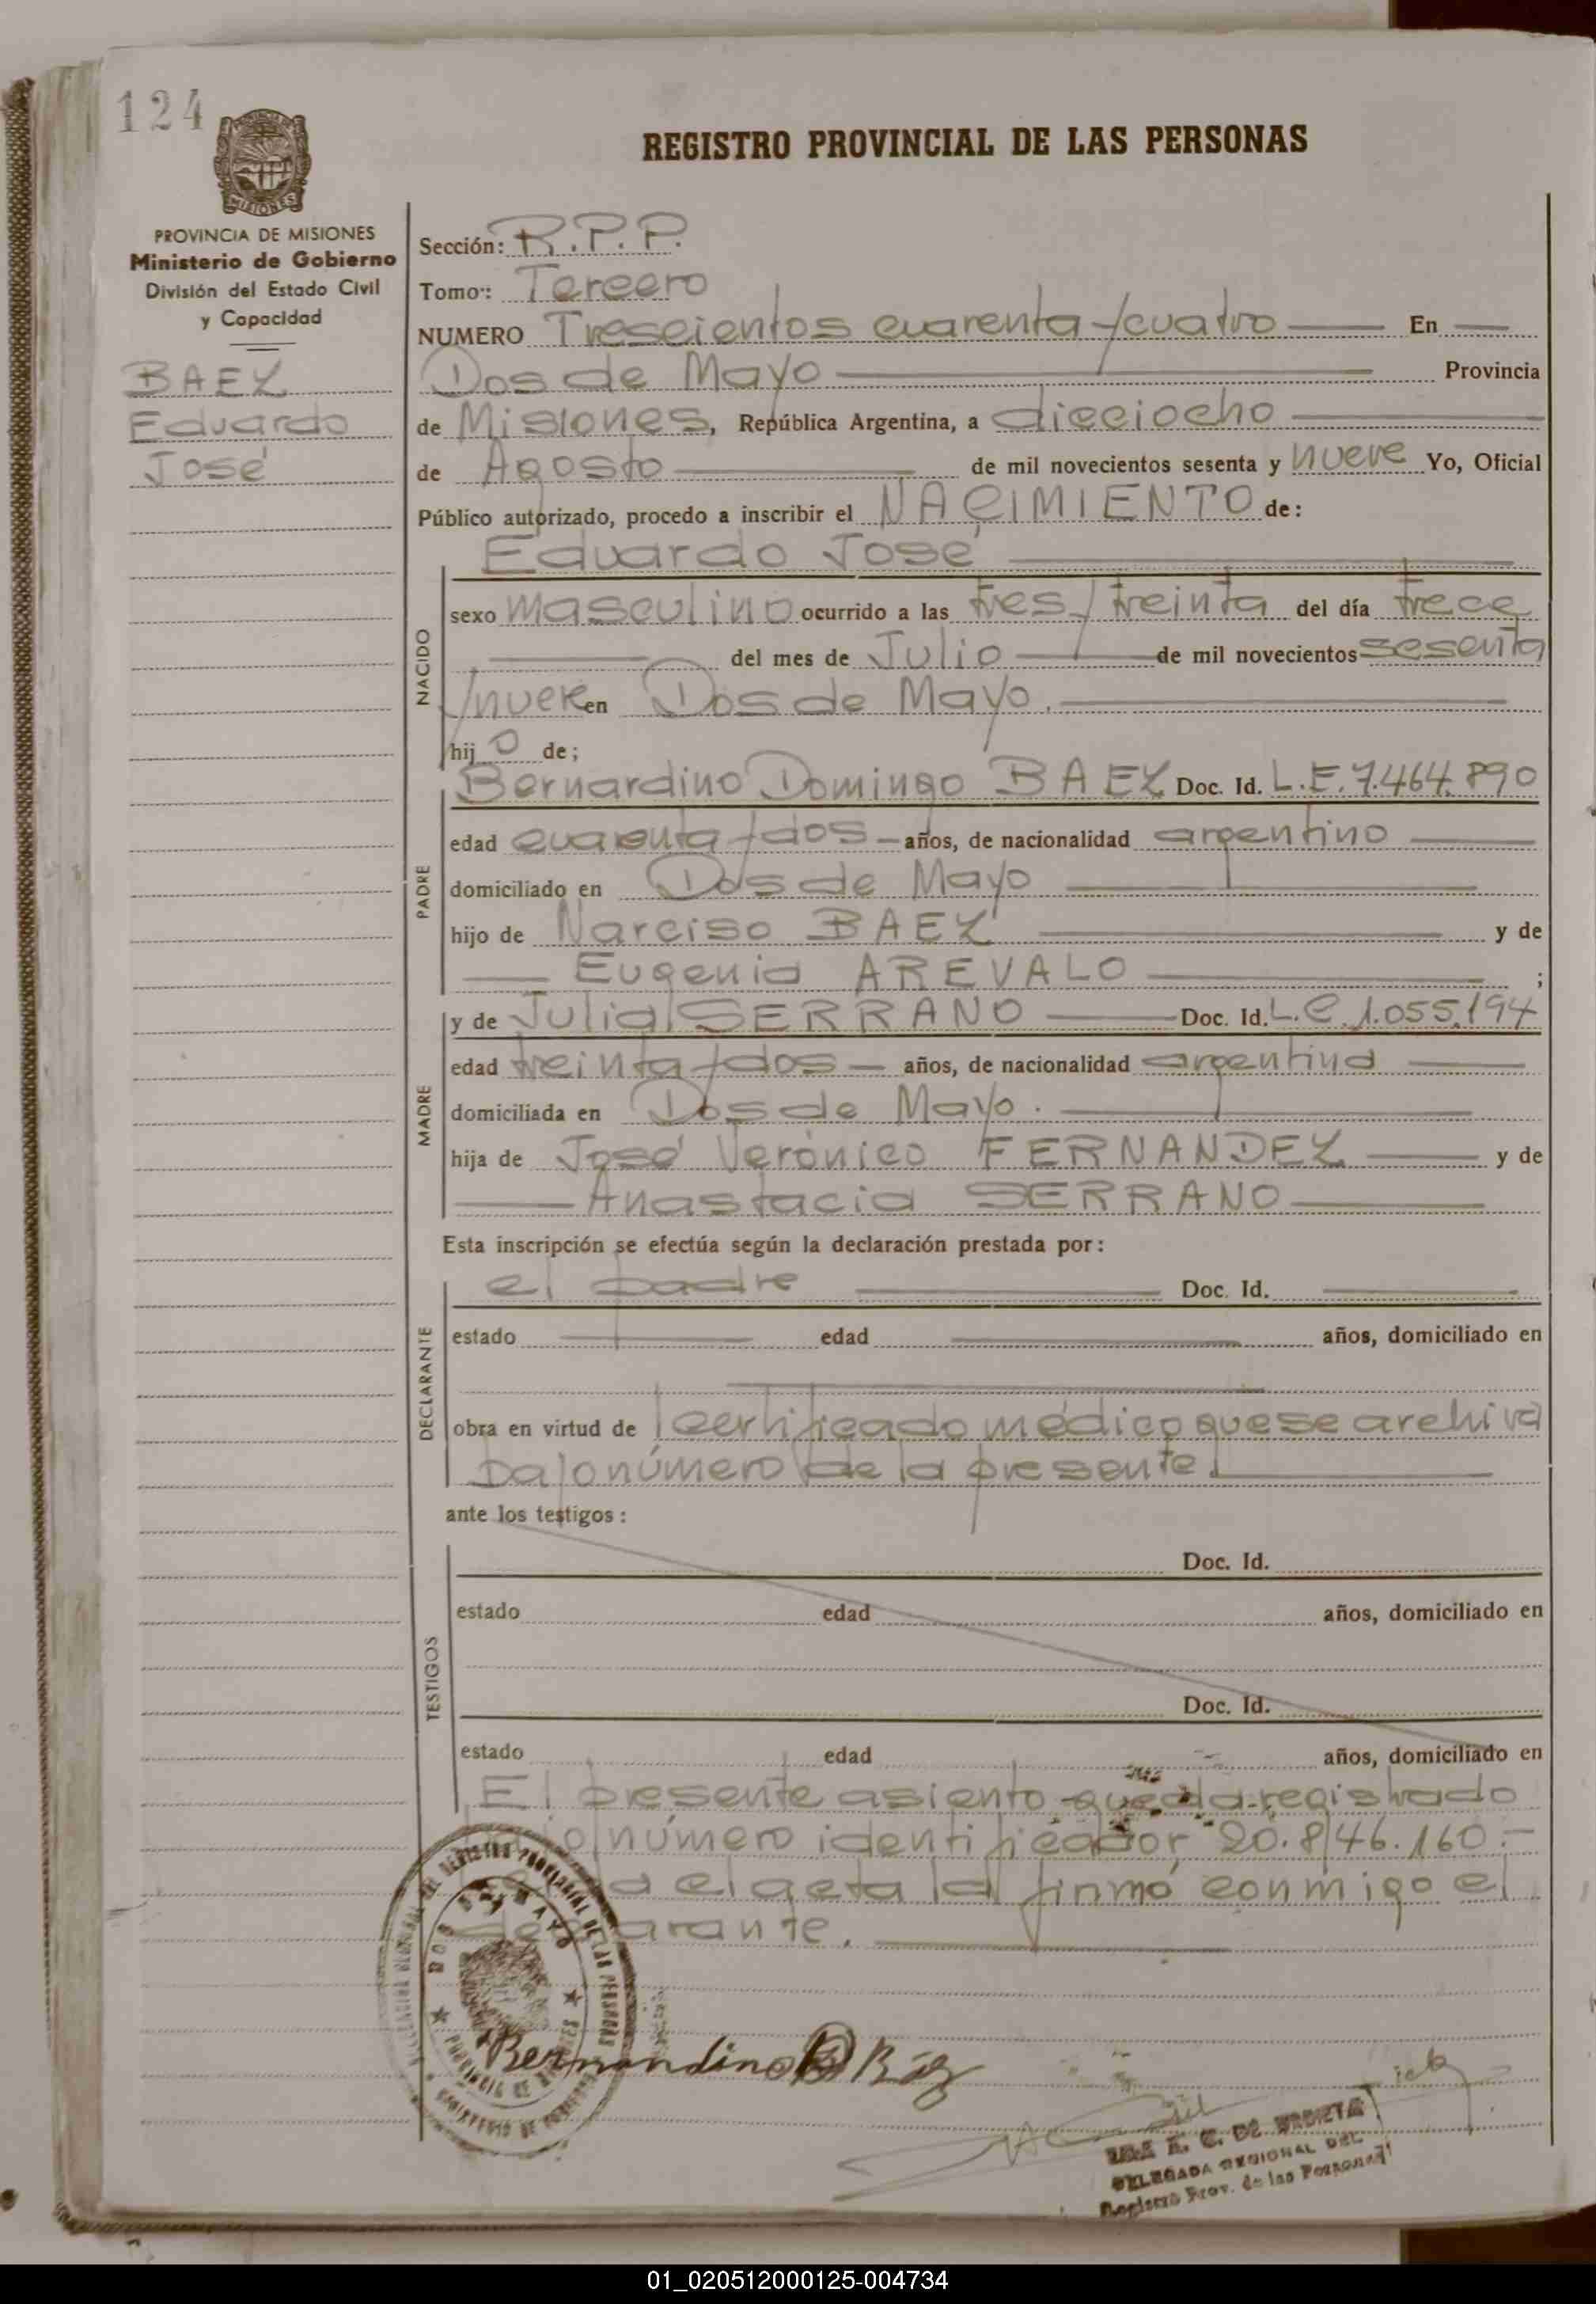 124
MISIONES
REGISTRO PROVINCIAL DE LAS PERSONAS
PROVINCIA DE MISIONES
Ministerio de Gobierno
División del Estado Civil
y Capacidad
BAEZ
Eduardo
José
Sección: R.P.P.
Tomo: Tercero
NUMERO Trescientos cuarenta y cuatro En
Dos de Mayo Provincia
de Misiones, República Argentina, a dieciocho
de Agosto de mil novecientos sesenta y nueve Yo, Oficial
Público autorizado, procedo a inscribir el NACIMIENTO de:
Eduardo José
NACIDO
sexo masculino ocurrido a las tres y treinta del día trece
del mes de Julio de mil novecientos sesenta
y nueve en Dos de Mayo.
hijo de;
PADRE
Bernardino Domingo BAEZ Doc. Id. L.E. 7.464.890
edad cuarenta y dos años, de nacionalidad argentino
domiciliado en Dos de Mayo
hijo de Narciso BAEZ y de
Eugenia AREVALO ;
MADRE
y de Julia SERRANO Doc. Id. L.C. 1.055.194
edad treinta y dos años, de nacionalidad argentina
domiciliada en Dos de Mayo.
hija de José Verónico FERNANDEZ y de
Anastacia SERRANO
Esta inscripción se efectúa según la declaración prestada por:
DECLARANTE
el padre Doc. Id.
estado edad años, domiciliado en
obra en virtud de certificado médico que se archiva
bajo número de la presente.
ante los testigos:
TESTIGOS
Doc. Id.
estado edad años, domiciliado en
Doc. Id.
estado edad años, domiciliado en
El presente asiento queda registrado
número identificador 20.846.160.-
el acta la firmó conmigo el
declarante.
DOS DE MAYO
Bernandino B Báez
E. C. DE
DELEGADA REGIONAL DEL
Registro Prov. de las Personas
01_020512000125-004734